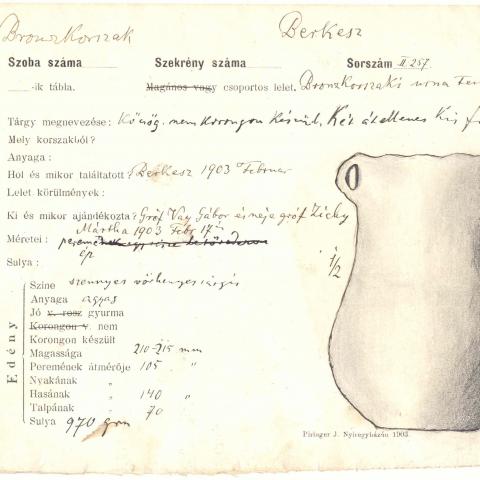 Bronzkorszak Berkesz
Szoba száma Szekrény száma Sorszám II. 257.
-ik tábla. Magános vagy csoportos lelet. Bronzkorszaki urna
Tárgy megnevezése: Köcsög, nem korongon készült, Két átellenes Kis
Mely korszakból?
Anyaga:
Hol és mikor találtatott? Berkesz 1903 Februar
Lelet körülmények:
Ki és mikor ajándékozta? Gróf Vay Gábor és neje gróf Zichy
Mártha 1903 Febr 17én
Méretei: peremének egy része letöredezve
ép
Sulya:
1/2
Edény
Szine szennyes vöröhenyes sárgás
Anyaga agyag
Jó v. rosz gyurma
Korongon v. nem
Korongon készült
Magassága 210-215 mm
Peremének átmérője 105 "
Nyakának "
Hasának " 140 "
Talpának " 70
Sulya 970 grm
Piringer J. Nyiregyházán 1903.